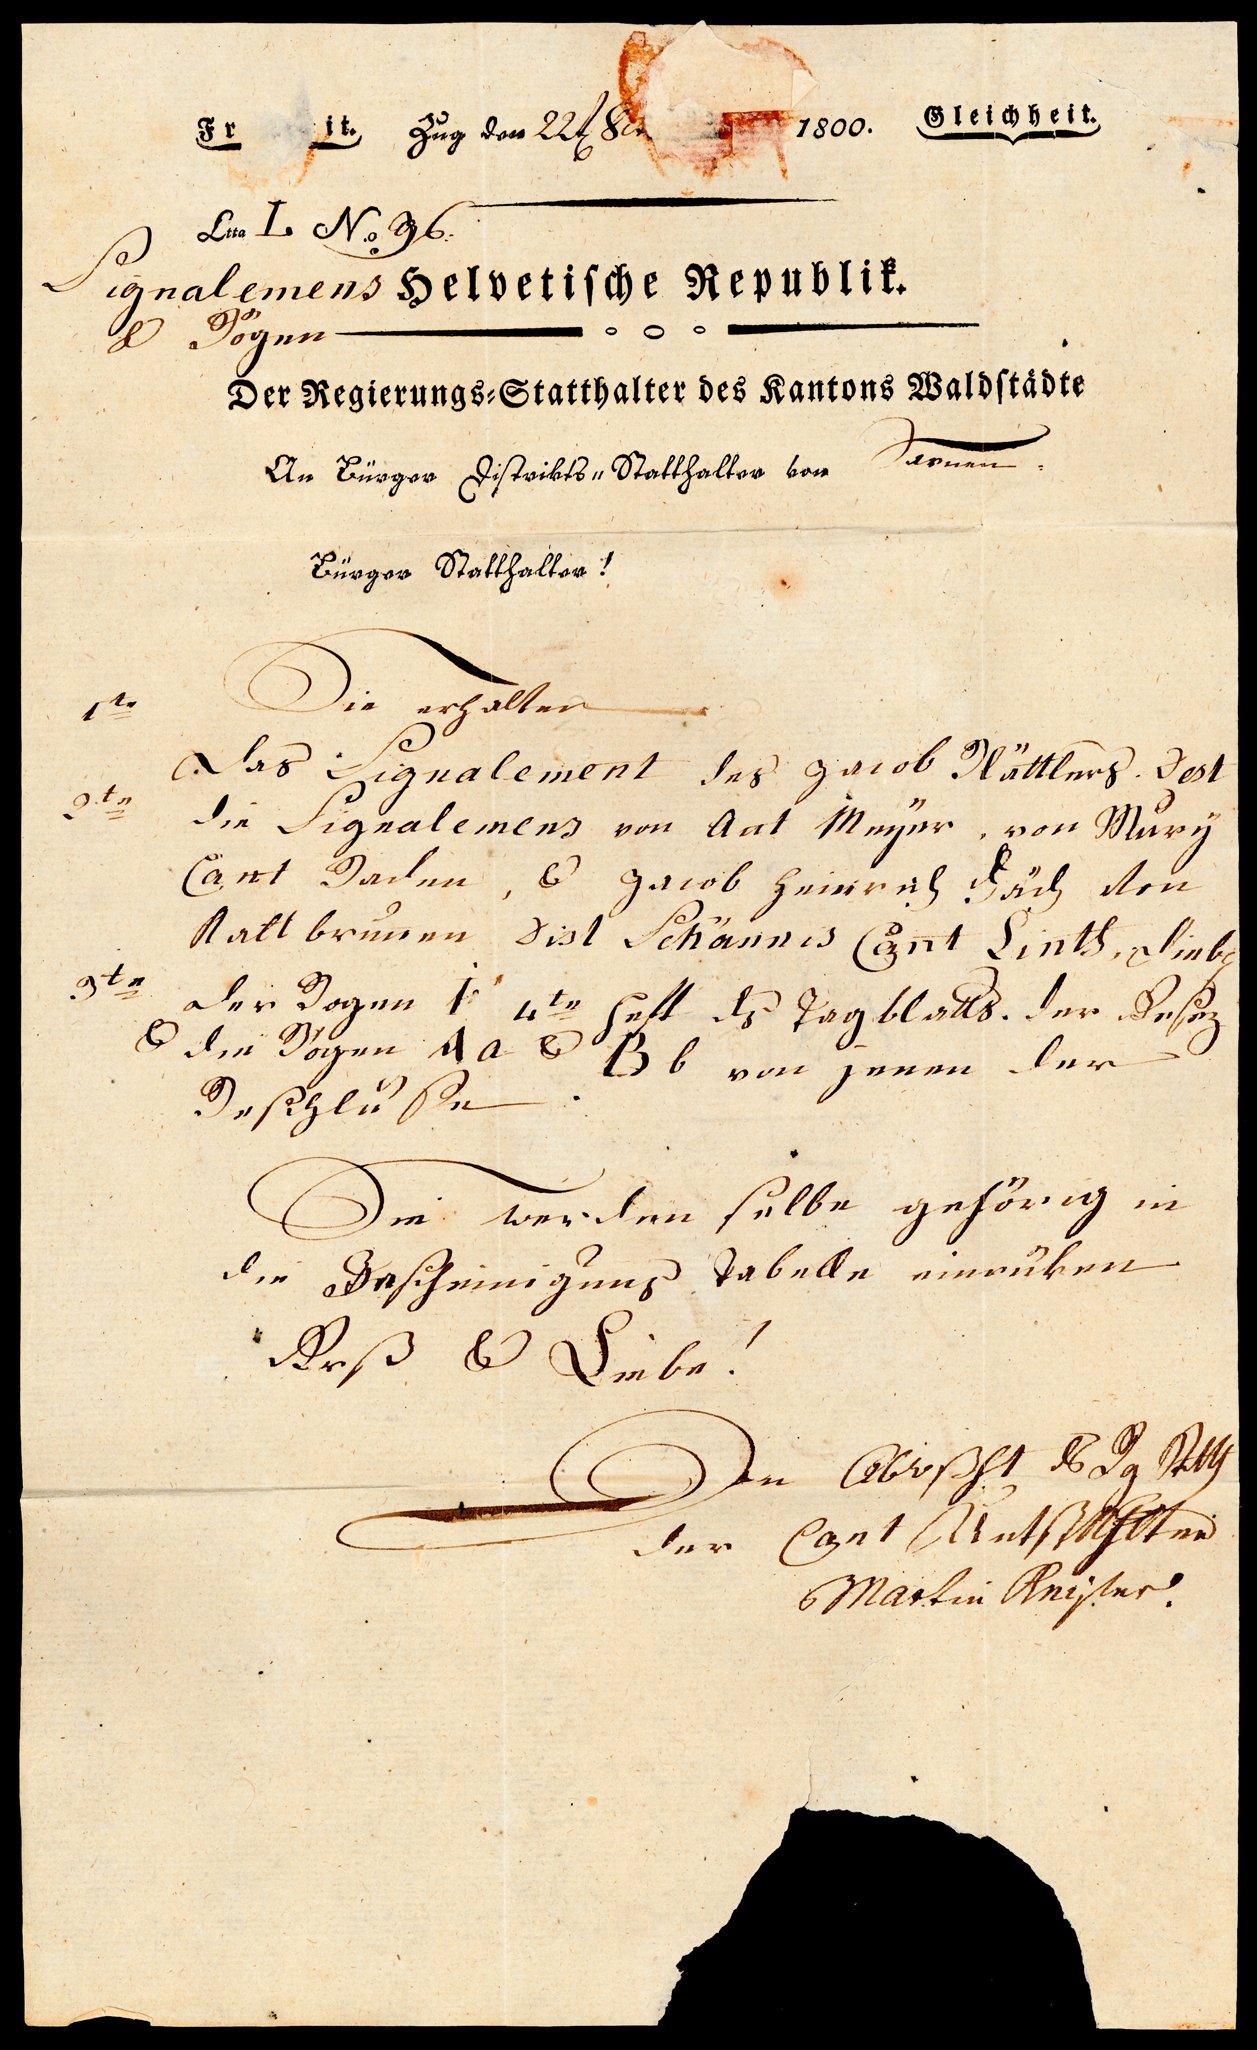 Fr it. Zug den 22t 1800. Gleichheit.
Litta L No. 36.
Signalemens Helvetische Republik.
& Bögen
Der Regierungs-Statthalter des Kantons Waldstädte
An Bürger Distrikts-Statthalter von Sarnen.
Bürger Statthalter!
Sie erhalten
1te das Signalement des Jacob Nättlers. Dist
2te die Signalemens von Ant Meyer, von Mury
Cant Baden, & Jacob Heinrich Däch von
Kaltbrunen Dist Schännis Cant Linth, Diebe
3te der Bogen 1 4te Heft des Tagblatts. der Gesez
& die Bögen A a & B b von jenen der
Beschlüße.
Sie werden selbe gehörig in
die Bescheinigungs Tabelle einrüken
Grß & Liebe!
In Abwßht ds Rg Stth
der Cant
Martin Keyser.